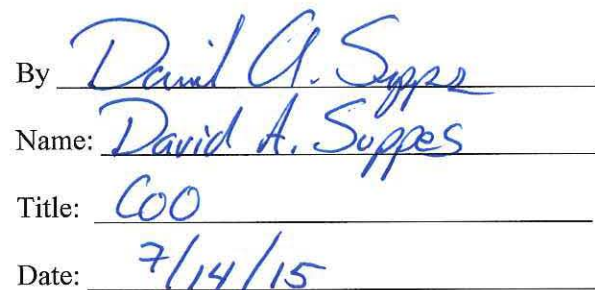 By David A. Suppes
Name: David A. Suppes
Title: COO
Date: 7/14/15